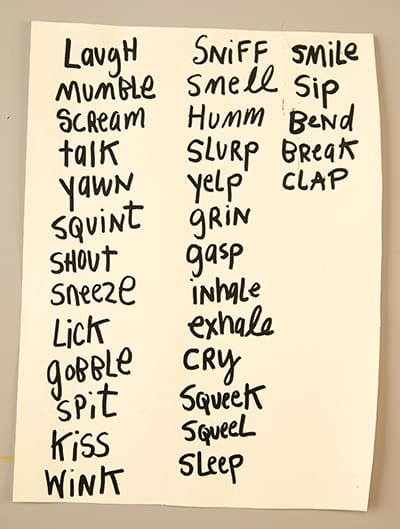 LaugH
mumBLe
SCReam
talK
yawN
SQUiNt
SHOUt
SNeeze
LicK
goBBLe
SPit
Kiss
WiNK
SNiFF
Smell
Humm
SLURP
yelp
gRiN
gasp
iNHale
exhale
CRy
SQueeK
SQueeL
SLeep
SmiLe
Sip
BeNd
BReaK
CLAP